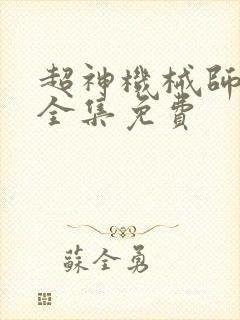 超神機械師
全集免費
蘇全勇